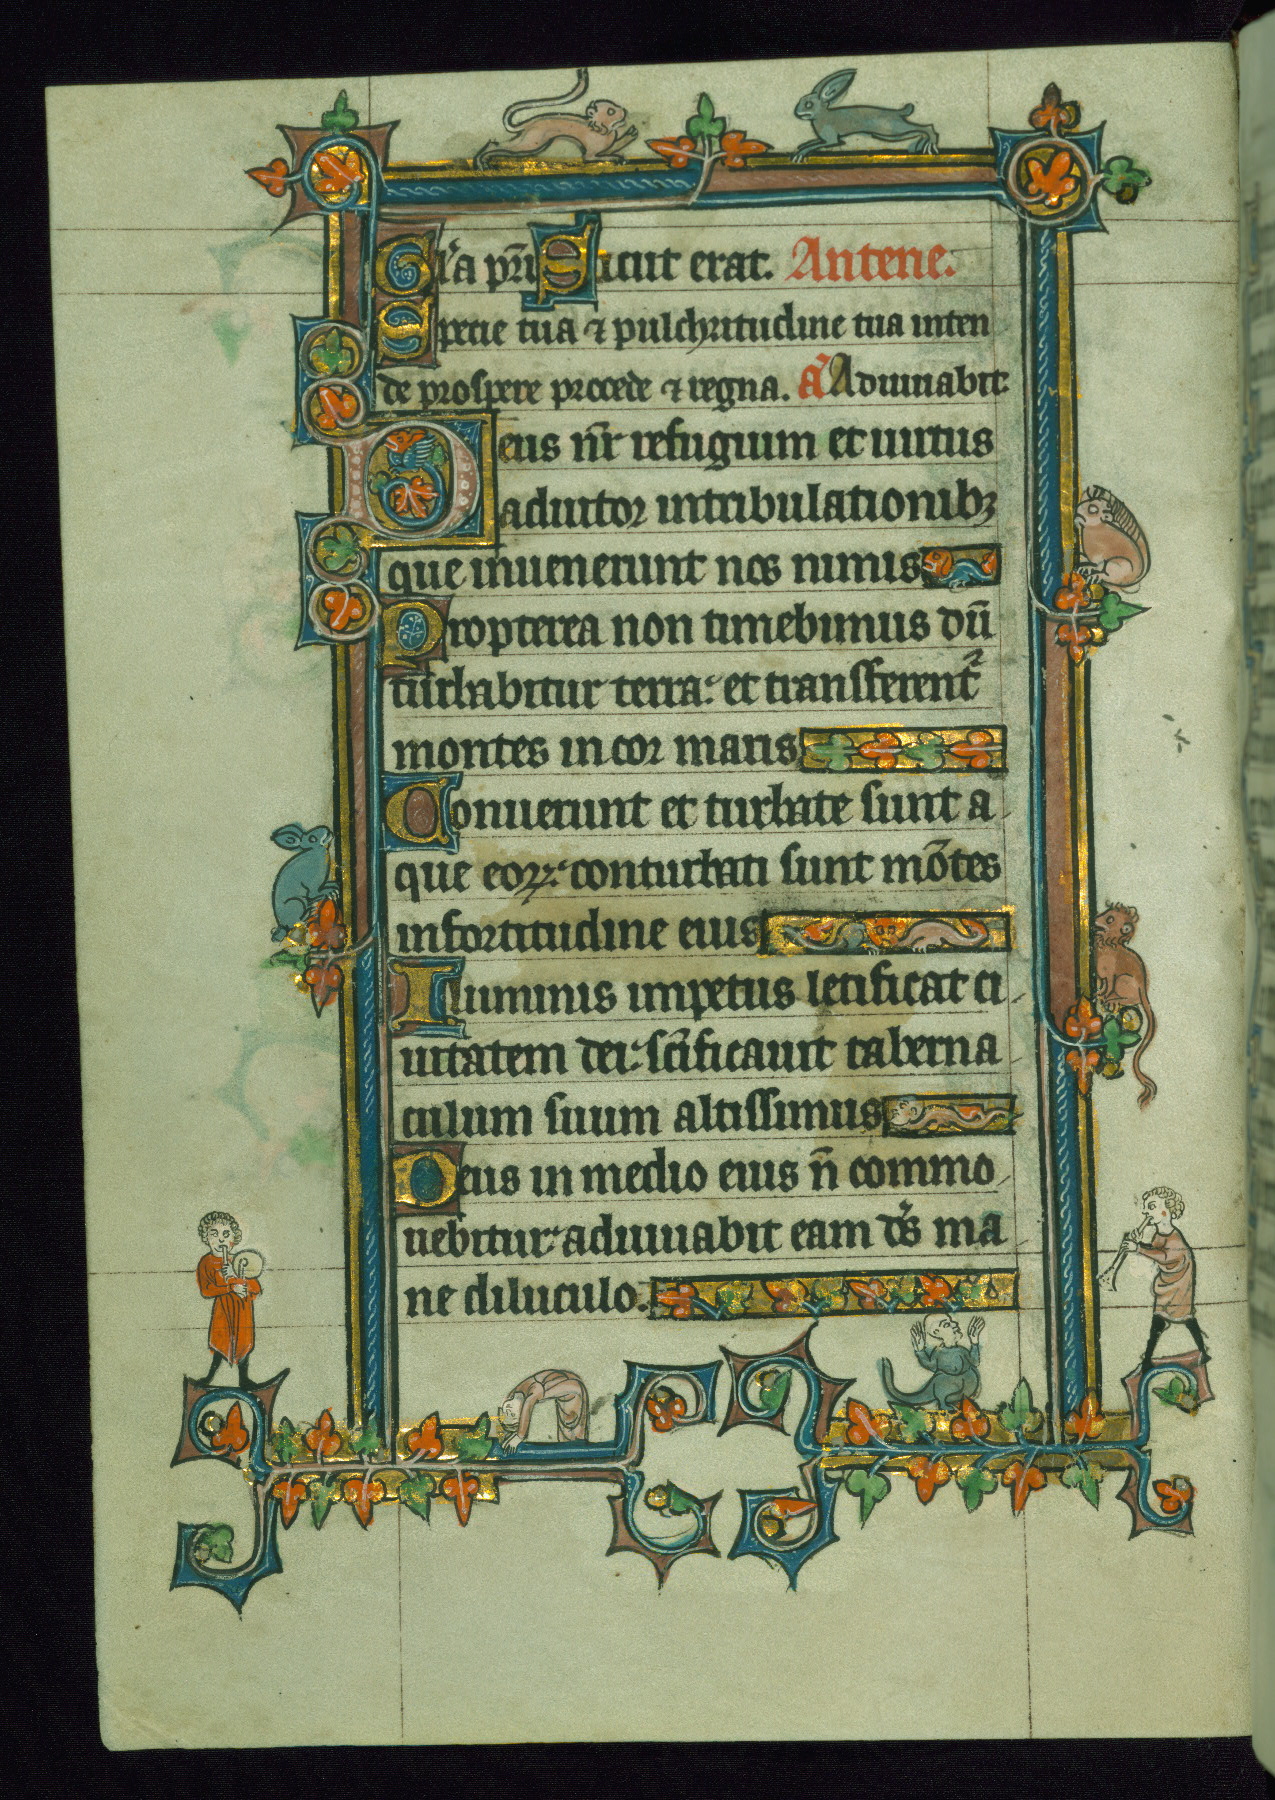 Gl'a pr̄i Sicut erat. Antene.
Specie tua ⁊ pulchritudine tua inten
de prospere procede ⁊ regna. a᷑ Adiuuabit
Deus nr̄ refugium et uirtus
adiutor in tribulationibꝫ
que inuenerunt nos nimis
Propterea non timebimus dū
turbabitur terra: et transferent᷑
montes in cor maris
Sonuerunt et turbate sunt a
que eoꝝ: conturbati sunt mōtes
in fortitudine eius
Fluminis impetus letificat ci
uitatem dei: sc̄ificauit taberna
culum suum altissimus
Deus in medio eius n̄ commo
uebitur: adiuuabit eam ds̄ ma
ne diluculo.